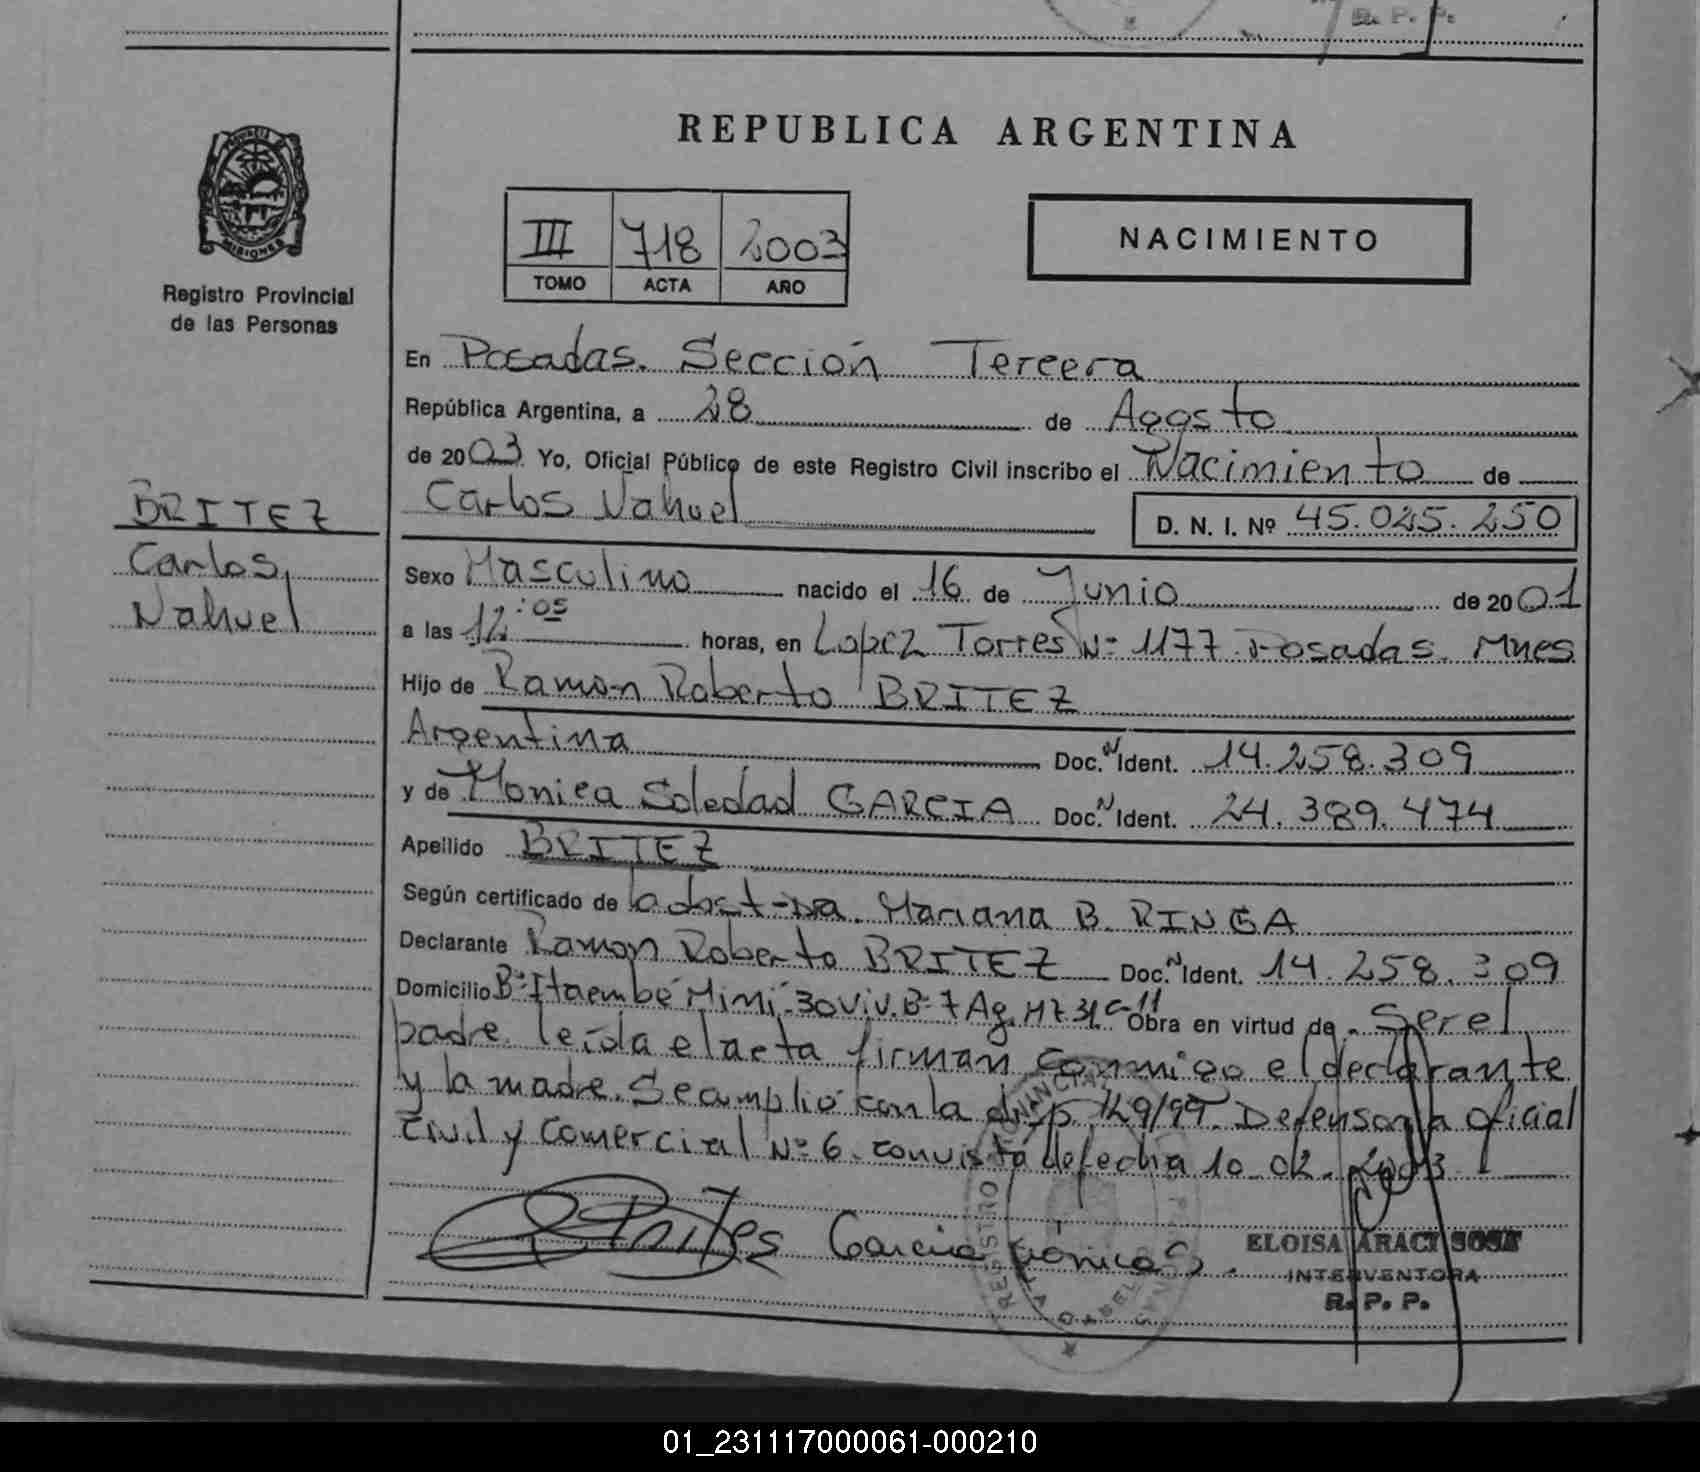 R. P. P.
REPUBLICA ARGENTINA
MISIONES
III 718 2003
TOMO ACTA AÑO
NACIMIENTO
Registro Provincial
de las Personas
En Posadas. Sección Tercera
República Argentina, a 28 de Agosto
de 2003 Yo, Oficial Público de este Registro Civil inscribo el Nacimiento de
Carlos Nahuel D. N. I. Nº 45.025.250
BRITEZ
Carlos
Nahuel
Sexo Masculino nacido el 16 de Junio de 2001
a las 12:05 horas, en Lopez Torres Nº 1177. Posadas. Mnes
Hijo de Ramon Roberto BRITEZ
Argentina Doc. N Ident. 14.258.309
y de Monica Soledad GARCIA Doc. N Ident. 24.389.474
Apellido BRITEZ
Según certificado de la obst-na. Mariana B. RINGA
Declarante Ramon Roberto BRITEZ Doc. N Ident. 14.258.309
Domicilio Bº Itaembé Miní. 30 Viv. Obra en virtud de Ser el
padre. leída el acta firman conmigo el declarante
y la madre. Se amplió con la 129/99. Defensoría Oficial
Civil y Comercial Nº 6. con vista de fecha 10.02.2003
Britez Garcia Mónica S.
REGISTRO PROVINCIAL
ELOISA ARACI SOSA
INTERVENTORA
R. P. P.
01_231117000061-000210